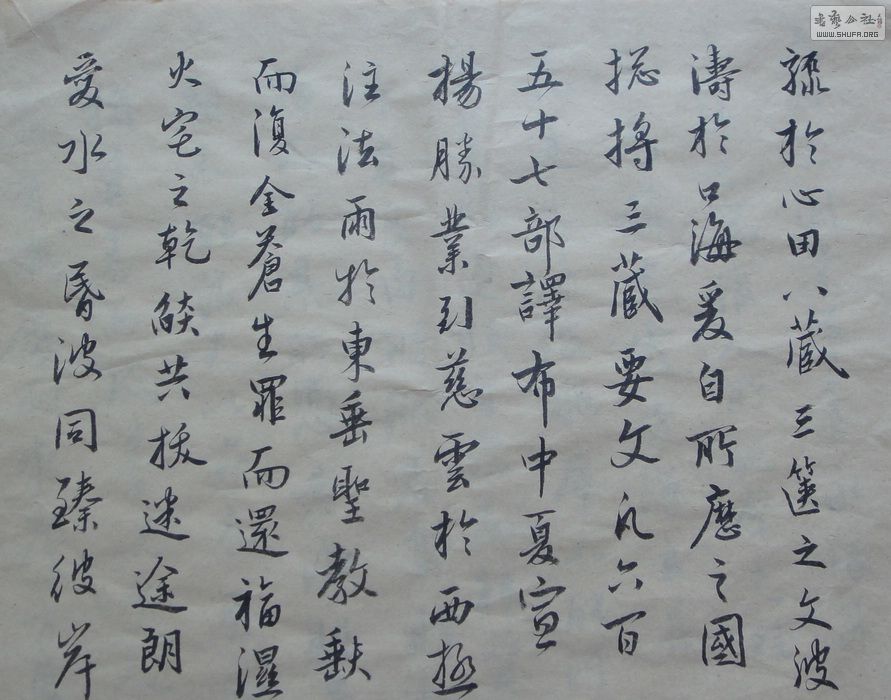 馳於心田八藏三篋之文波
濤於口海爰自所歷之國
揔將三藏要文凡六百
五十七部譯布中夏宣
揚勝業引慈雲於西極
注法雨於東垂聖教缺
而復全蒼生罪而還福濕
火宅之乾燄共拔迷途朗
愛水之昏波同臻彼岸
書藝公社
WWW.SHUFA.ORG